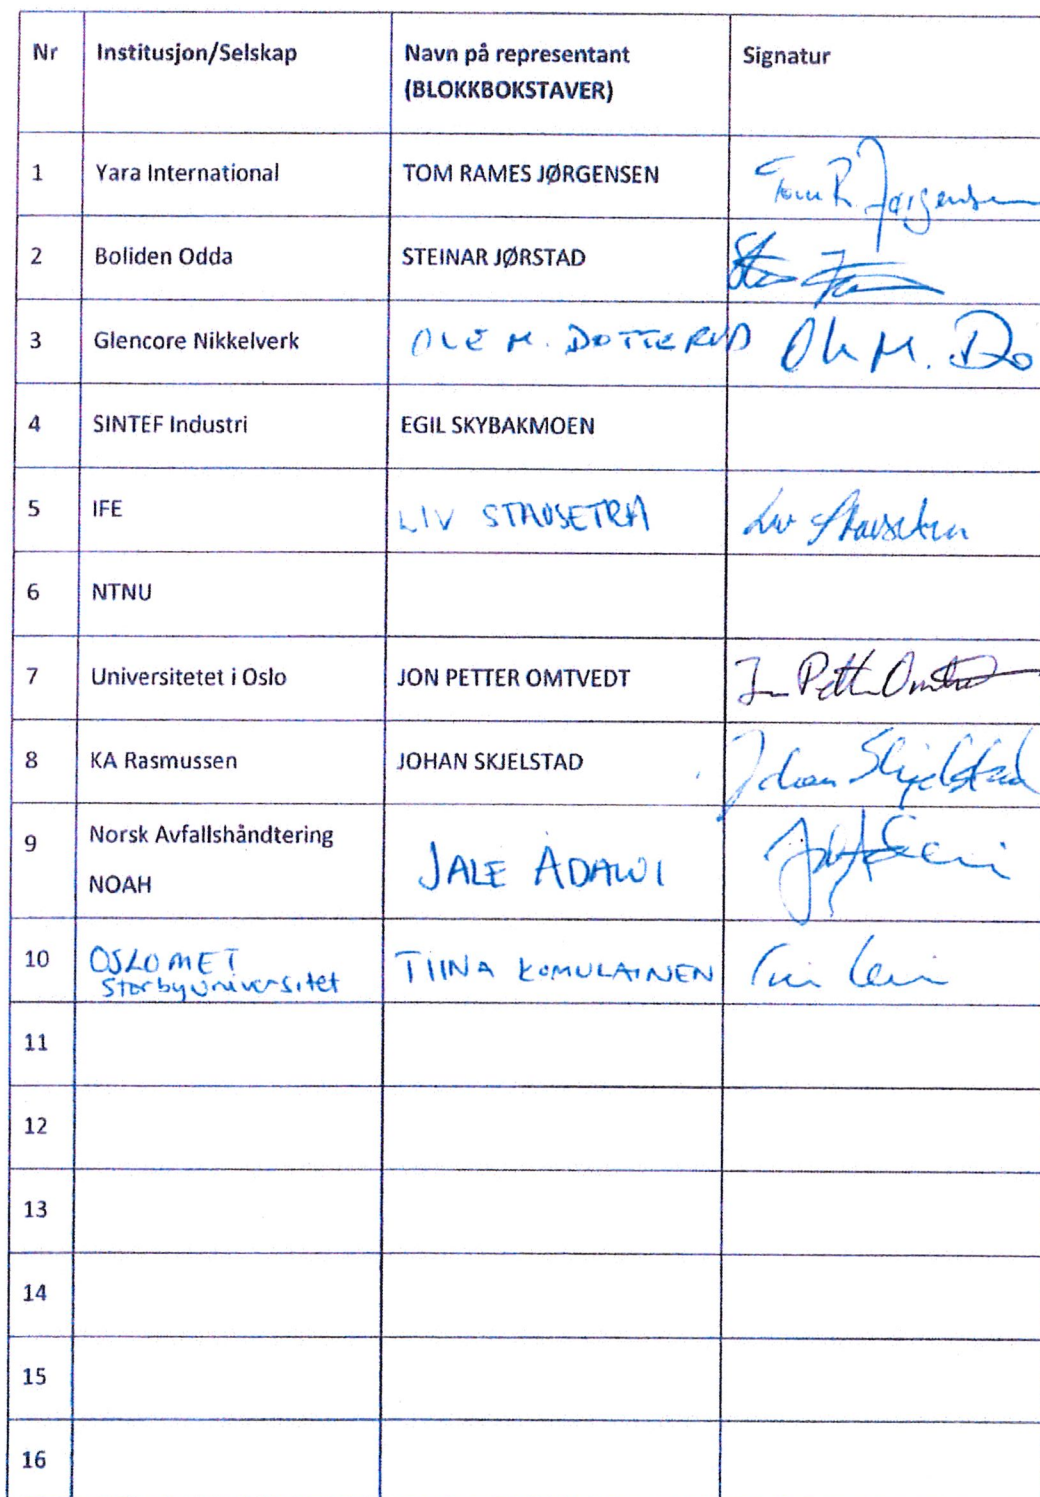 Nr Institusjon/Selskap Navn på representant Signatur
(BLOKKBOKSTAVER)
1 Yara International TOM RAMES JØRGENSEN Tom R. Jørgensen
2 Boliden Odda STEINAR JØRSTAD
3 Glencore Nikkelverk OLE M. DOTTERUD Ole M. Do
4 SINTEF Industri EGIL SKYBAKMOEN
5 IFE LIV STAVSETRA Liv Stavsetra
6 NTNU
7 Universitetet i Oslo JON PETTER OMTVEDT Jon Petter Omtvedt
8 KA Rasmussen JOHAN SKJELSTAD Johan Skjelstad
9 Norsk Avfallshåndtering
NOAH JALE ADAWI
10 OSLOMET TIINA KOMULAINEN
Storbyuniversitet
11
12
13
14
15
16